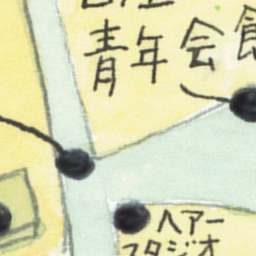 青年会館
ヘアー
スタジオ